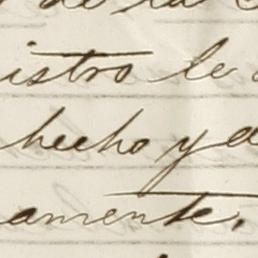 de la
istro le
hecho y d
amente,